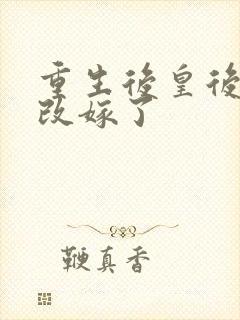 重生後皇後
改嫁了
鞭真香